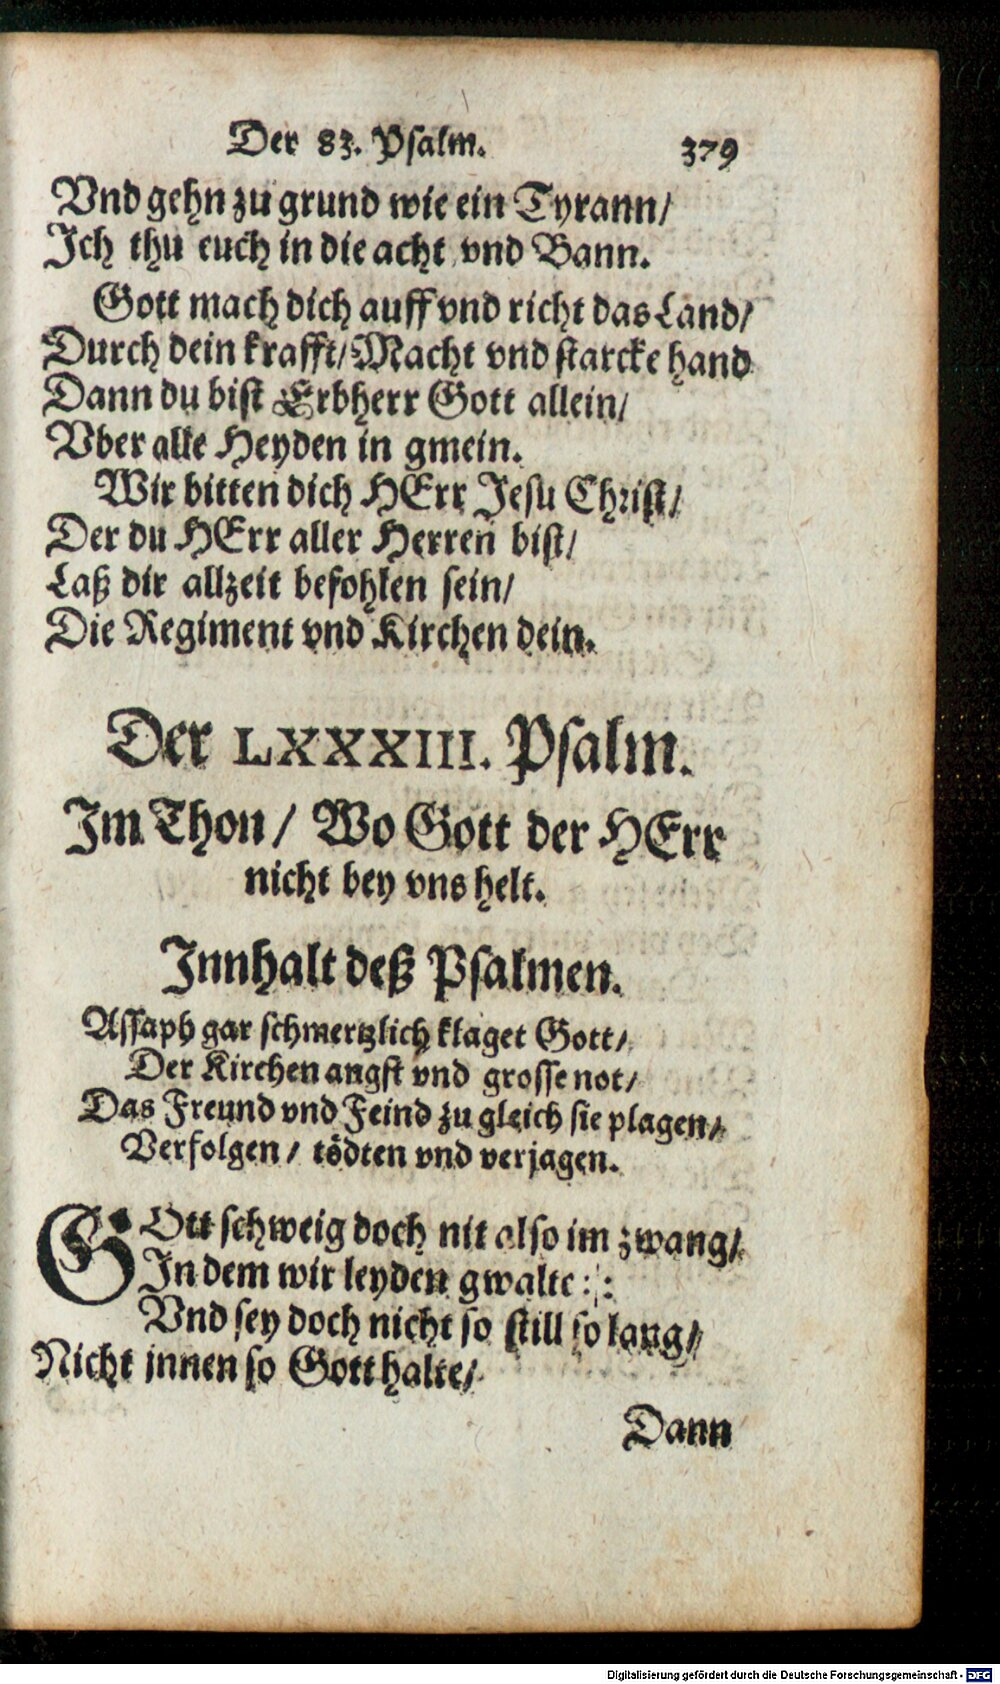 Der 83. Psalm. 379
Vnd gehn zu grund wie ein Tyrann/
Ich thu euch in die acht vnd Bann.
Gott mach dich auff vnd richt das Land/
Durch dein krafft/ Macht vnd starcke hand
Dann du bist Erbherr Gott allein/
Vber alle Heyden in gmein.
Wir bitten dich HErr Jesu Christ/
Der du HErr aller Herren bist/
Laß dir allzeit befohlen sein/
Die Regiment vnd Kirchen dein.
Der LXXXIII. Psalm.
Im Thon/ Wo Gott der HErr
nicht bey vns helt.
Innhalt deß Psalmen.
Assaph gar schmertzlich klaget Gott/
Der Kirchen angst vnd grosse not/
Das Freund vnd Feind zu gleich sie plagen/
Verfolgen/ tödten vnd verjagen.
GOtt schweig doch nit also im zwang/
In dem wir leyden gwalte :|:
Vnd sey doch nicht so still so lang/
Nicht jnnen so Gott halte/
Dann
Digitalisierung gefördert durch die Deutsche Forschungsgemeinschaft - DFG